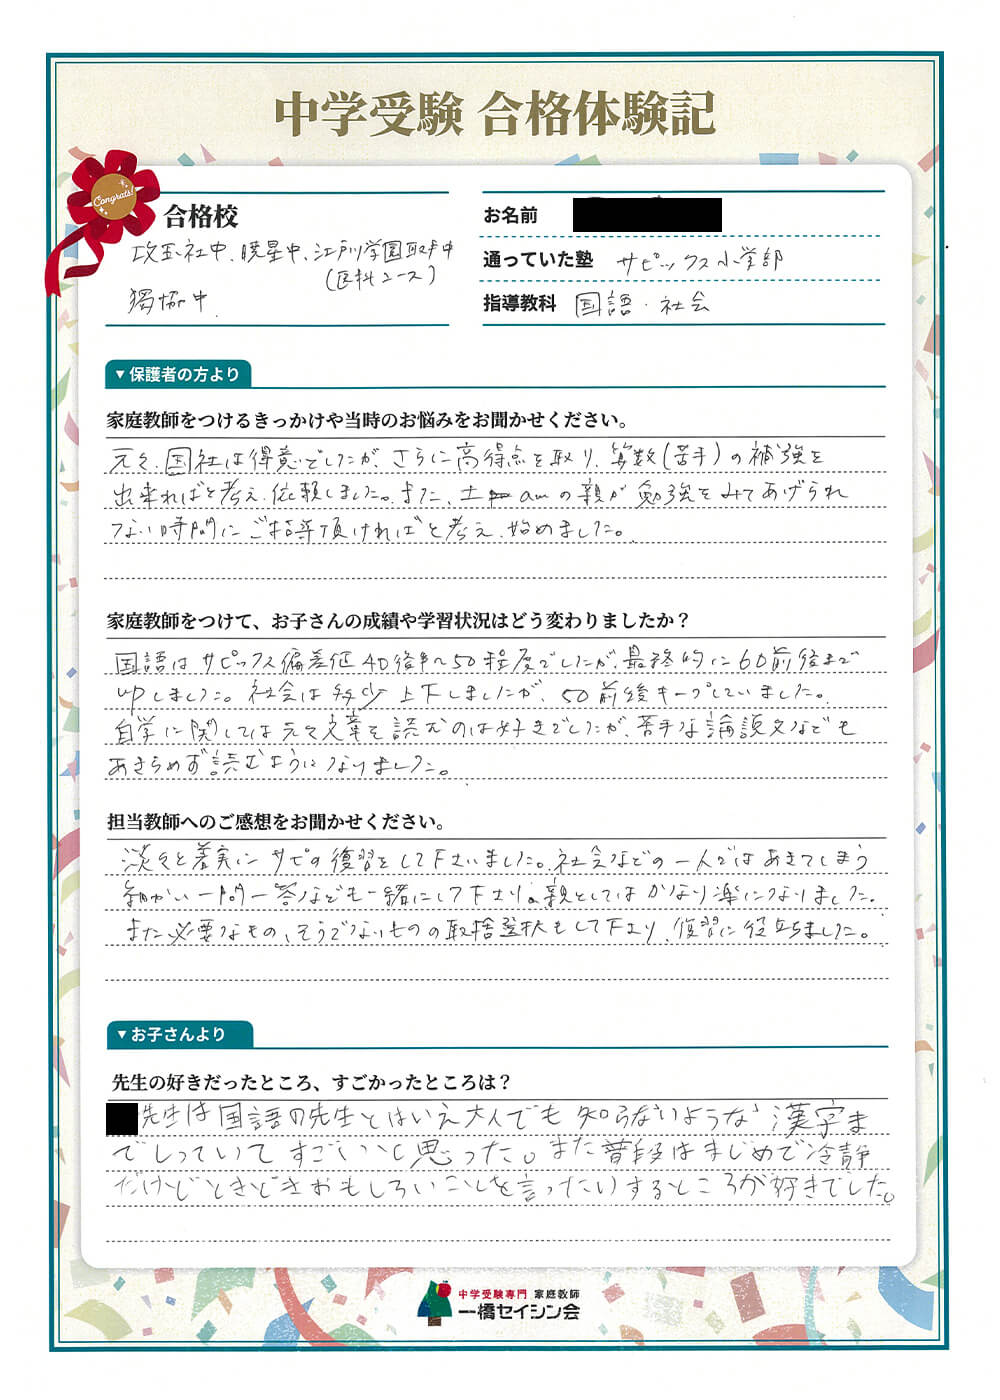 中学受験 合格体験記
Congrats!
合格校
攻玉社中、暁星中、江戸川学園取手中
(医科コース)
獨協中
お名前
通っていた塾 サピックス小学部
指導教科 国語・社会
▼保護者の方より
家庭教師をつけるきっかけや当時のお悩みをお聞かせください。
元々、国社は得意でしたが、さらに高得点を取り、算数(苦手)の補強を
出来ればと考え、依頼しました。また、土 amの親が勉強をみてあげられ
ない時間にご指導頂ければと考え、始めました。
家庭教師をつけて、お子さんの成績や学習状況はどう変わりましたか？
国語はサピックス偏差値40後半〜50程度でしたが、最終的に60前後まで
upしました。社会は多少上下しましたが、50前後キープしていました。
自学に関しては元々文章を読むのは好きでしたが、苦手な論説文なども
あきらめず読むようになりました。
担当教師へのご感想をお聞かせください。
淡々と着実にサピの復習をして下さいました。社会などの一人ではあきてしまう
細かい一問一答なども一緒にして下さり、親としてはかなり楽になりました。
また必要なもの、そうでないものの取捨選択もして下さり、復習に役立ちました。
▼お子さんより
先生の好きだったところ、すごかったところは？
先生は国語の先生とはいえ大人でも知らないような漢字ま
でしっていてすごいと思った。また普段はまじめで冷静
だけどときどきおもしろいことを言ったいするところが好きでした。
中学受験専門 家庭教師
一橋セイシン会